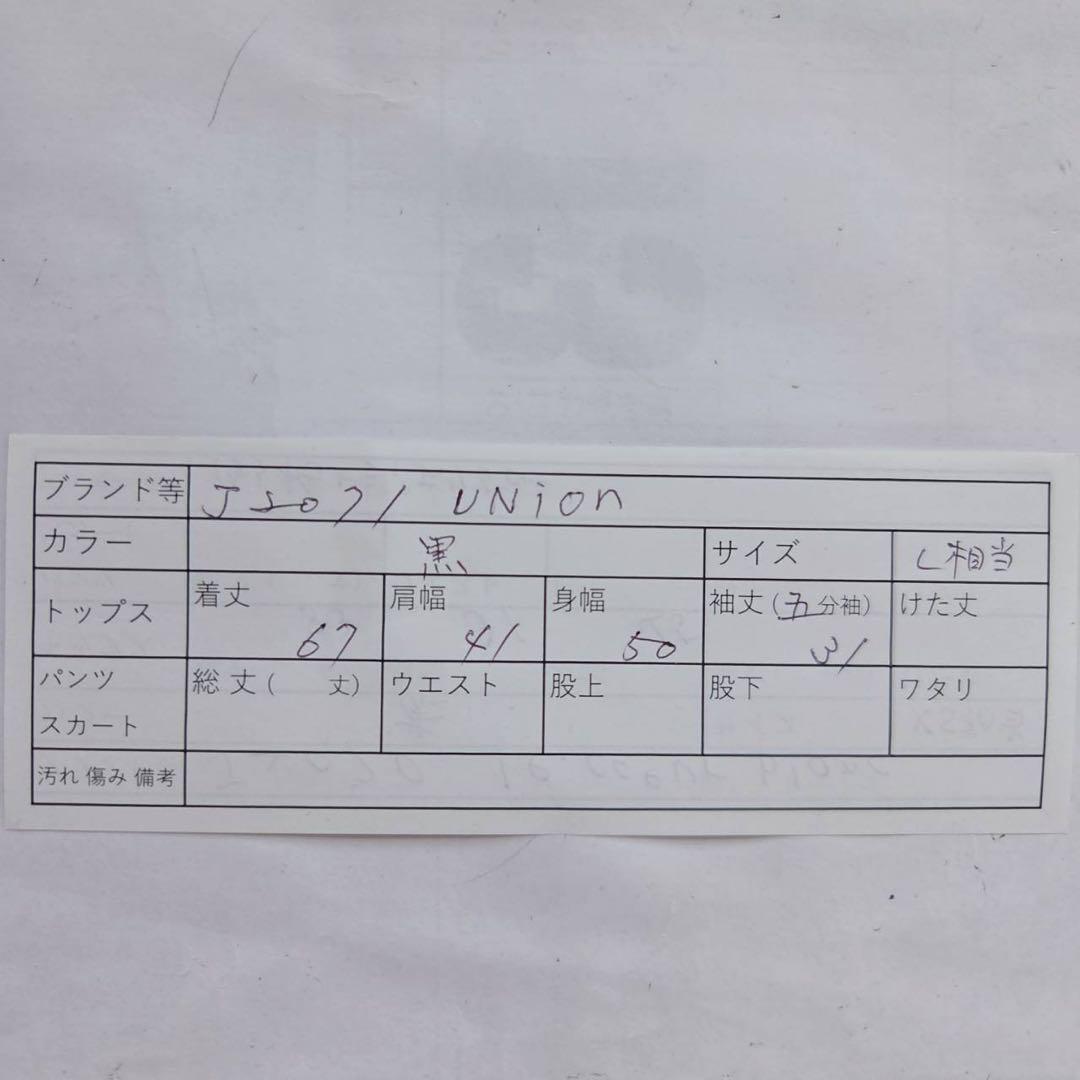 ブランド等 J5071 UNION
カラー 黒 サイズ L相当
トップス 着丈 67 肩幅 41 身幅 50 袖丈(五分袖) 31 けた丈
パンツ スカート 総丈( 丈) ウエスト 股上 股下 ワタリ
汚れ 傷み 備考